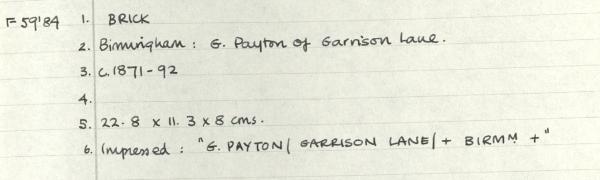 F59'84 1. BRICK
2. Birmingham: G. Payton of Garrison Lane.
3. c.1871-92
4.
5. 22.8 x 11.3 x 8 cms.
6. Impressed: "G. PAYTON/ GARRISON LANE/ + BIRMM +"